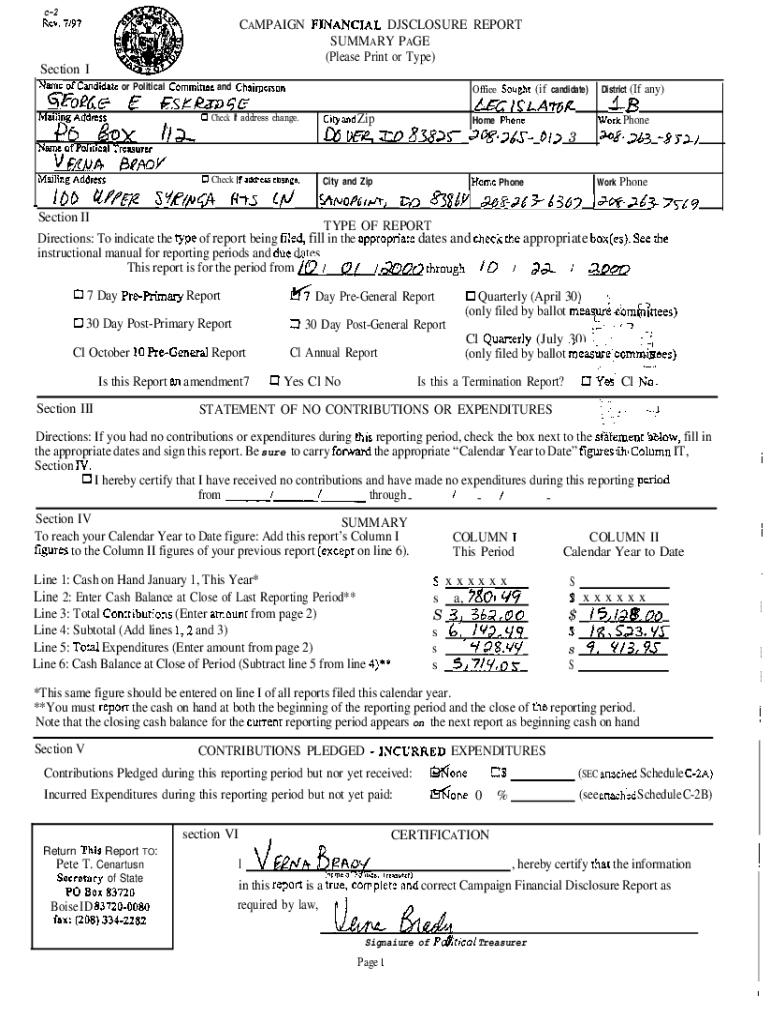 c-2
Rev. 7/97
CAMPAIGN FINANCIAL DJSCLOSURE REPORT
SUMMARY PAGE
(Please Print or Type)
Section I
Name of Candidate or Political Committee and Chairperson
Office Sought (if candidate)
District (If any)
GEORGE E ESKRIDGE
LEGISLATOR
1B
Mailing Address
Check if address change.
City and Zip
Home Phone
Work Phone
PO BOX 112
DOVER, ID 83825
208-265-0123
208-263-8521
Name of Political Treasurer
VERNA BRADY
Mailing Address
Check if address change.
City and Zip
Home Phone
Work Phone
100 UPPER SYRINGA HTS LN
SANDPOINT, ID 83864
208-263-6367
208-263-7569
Section II
TYPE OF REPORT
Directions: To indicate the type of report being filed, fill in the appropriate dates and check the appropriate box(es). See the
instructional manual for reporting periods and due dates
This report is for the period from 10 / 01 / 2000 through 10 / 22 / 2000
7 Day Pre-Primary Report
7 Day Pre-General Report
Quarterly (April 30)
(only filed by ballot measure committees)
30 Day Post-Primary Report
30 Day Post-General Report
Cl Quarterly (July 30)
(only filed by ballot measure committees)
Cl October 10 Pre-General Report
Cl Annual Report
Is this Report an amendment?
Yes Cl No
Is this a Termination Report?
Yes Cl No.
Section III
STATEMENT OF NO CONTRIBUTIONS OR EXPENDITURES
Directions: If you had no contributions or expenditures during this reporting period, check the box next to the statement below, fill in
the appropriate dates and sign this report. Be sure to carry forward the appropriate “Calendar Year to Date” figures in Column IT,
Section IV.
I hereby certify that I have received no contributions and have made no expenditures during this reporting period
from / / through / /
Section IV
SUMMARY
To reach your Calendar Year to Date figure: Add this report’s Column I
figures to the Column II figures of your previous report (except on line 6).
COLUMN I
This Period
COLUMN II
Calendar Year to Date
Line 1: Cash on Hand January 1, This Year*
$ x x x x x x
$
Line 2: Enter Cash Balance at Close of Last Reporting Period**
s a, 780.49
$ x x x x x x
Line 3: Total Contributions (Enter amount from page 2)
$ 3, 362.00
$ 15,128.00
Line 4: Subtotal (Add lines 1, 2 and 3)
s 6, 142.49
$ 18,523.45
Line 5: Total Expenditures (Enter amount from page 2)
s 428.44
s 9, 413.95
Line 6: Cash Balance at Close of Period (Subtract line 5 from line 4)**
s 5,714.05
$
*This same figure should be entered on line I of all reports filed this calendar year.
**You must report the cash on hand at both the beginning of the reporting period and the close of the reporting period.
Note that the closing cash balance for the current reporting period appears on the next report as beginning cash on hand
Section V
CONTRIBUTIONS PLEDGED - INCURRED EXPENDITURES
Contributions Pledged during this reporting period but nor yet received:
None
$
(SEC attached Schedule C-2A)
Incurred Expenditures during this reporting period but not yet paid:
None 0 %
(see attached Schedule C-2B)
section VI
CERTIFICATION
Return This Report TO:
Pete T. Cenartusn
Secretary of State
PO Box 83720
Boise ID 83720-0080
fax: (208) 334-2282
I VERNA BRADY , hereby certify that the information
(name of political treasurer)
in this report is a true, complete and correct Campaign Financial Disclosure Report as
required by law,
Verna Brady
Signaiure of Political Treasurer
Page 1